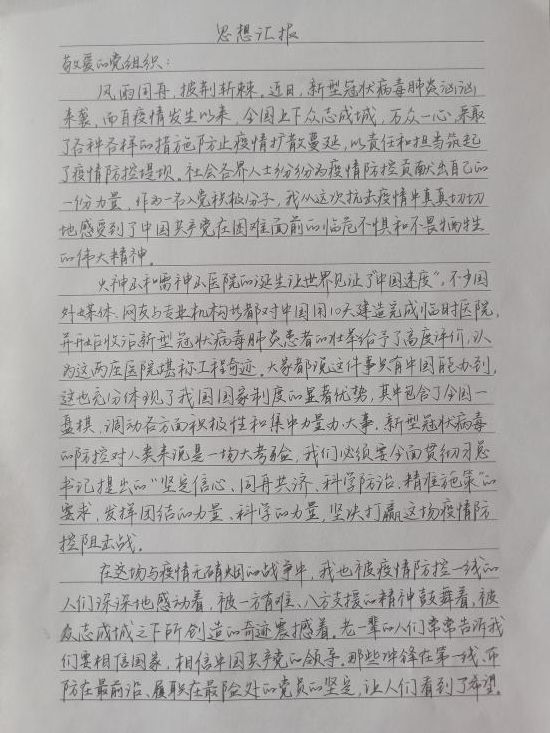 思想汇报
敬爱的党组织：
风雨同舟，披荆斩棘。近日，新型冠状病毒肺炎汹汹
来袭，而自疫情发生以来，全国上下众志成城，万众一心，采取
了各种各样的措施防止疫情扩散蔓延，以责任和担当筑起
了疫情防控堤坝。社会各界人士纷纷为疫情防控贡献出自己的
一份力量，作为一名入党积极分子，我从这次抗击疫情中真真切切
地感受到了中国共产党在困难面前的临危不惧和不畏牺牲
的伟大精神。
火神山和雷神山医院的诞生让世界见证了“中国速度”，不少国
外媒体、网友与专业机构都对中国用10天建造完成临时医院，
并开始收治新型冠状病毒肺炎患者的壮举给予了高度评价，认
为这两座医院堪称工程奇迹。大家都说这件事只有中国能办到，
这也充分体现了我国国家制度的显著优势，其中包含了全国一
盘棋，调动各方面积极性和集中力量办大事。新型冠状病毒
的防控对人类来说是一场大考验，我们必须要全面贯彻习总
书记提出的“坚定信心、同舟共济、科学防治、精准施策”的
要求，发挥团结的力量、科学的力量，坚决打赢这场疫情防
控阻击战。
在这场与疫情无硝烟的战争中，我也被疫情防控一线的
人们深深地感动着，被一方有难、八方支援的精神鼓舞着，被
众志成城之下所创造的奇迹震撼着。老一辈的人们常常告诉我
们要相信国家，相信中国共产党的领导。那些冲锋在第一线、布
防在最前沿、履职在最险处的党员的坚定，让人们看到了希望。